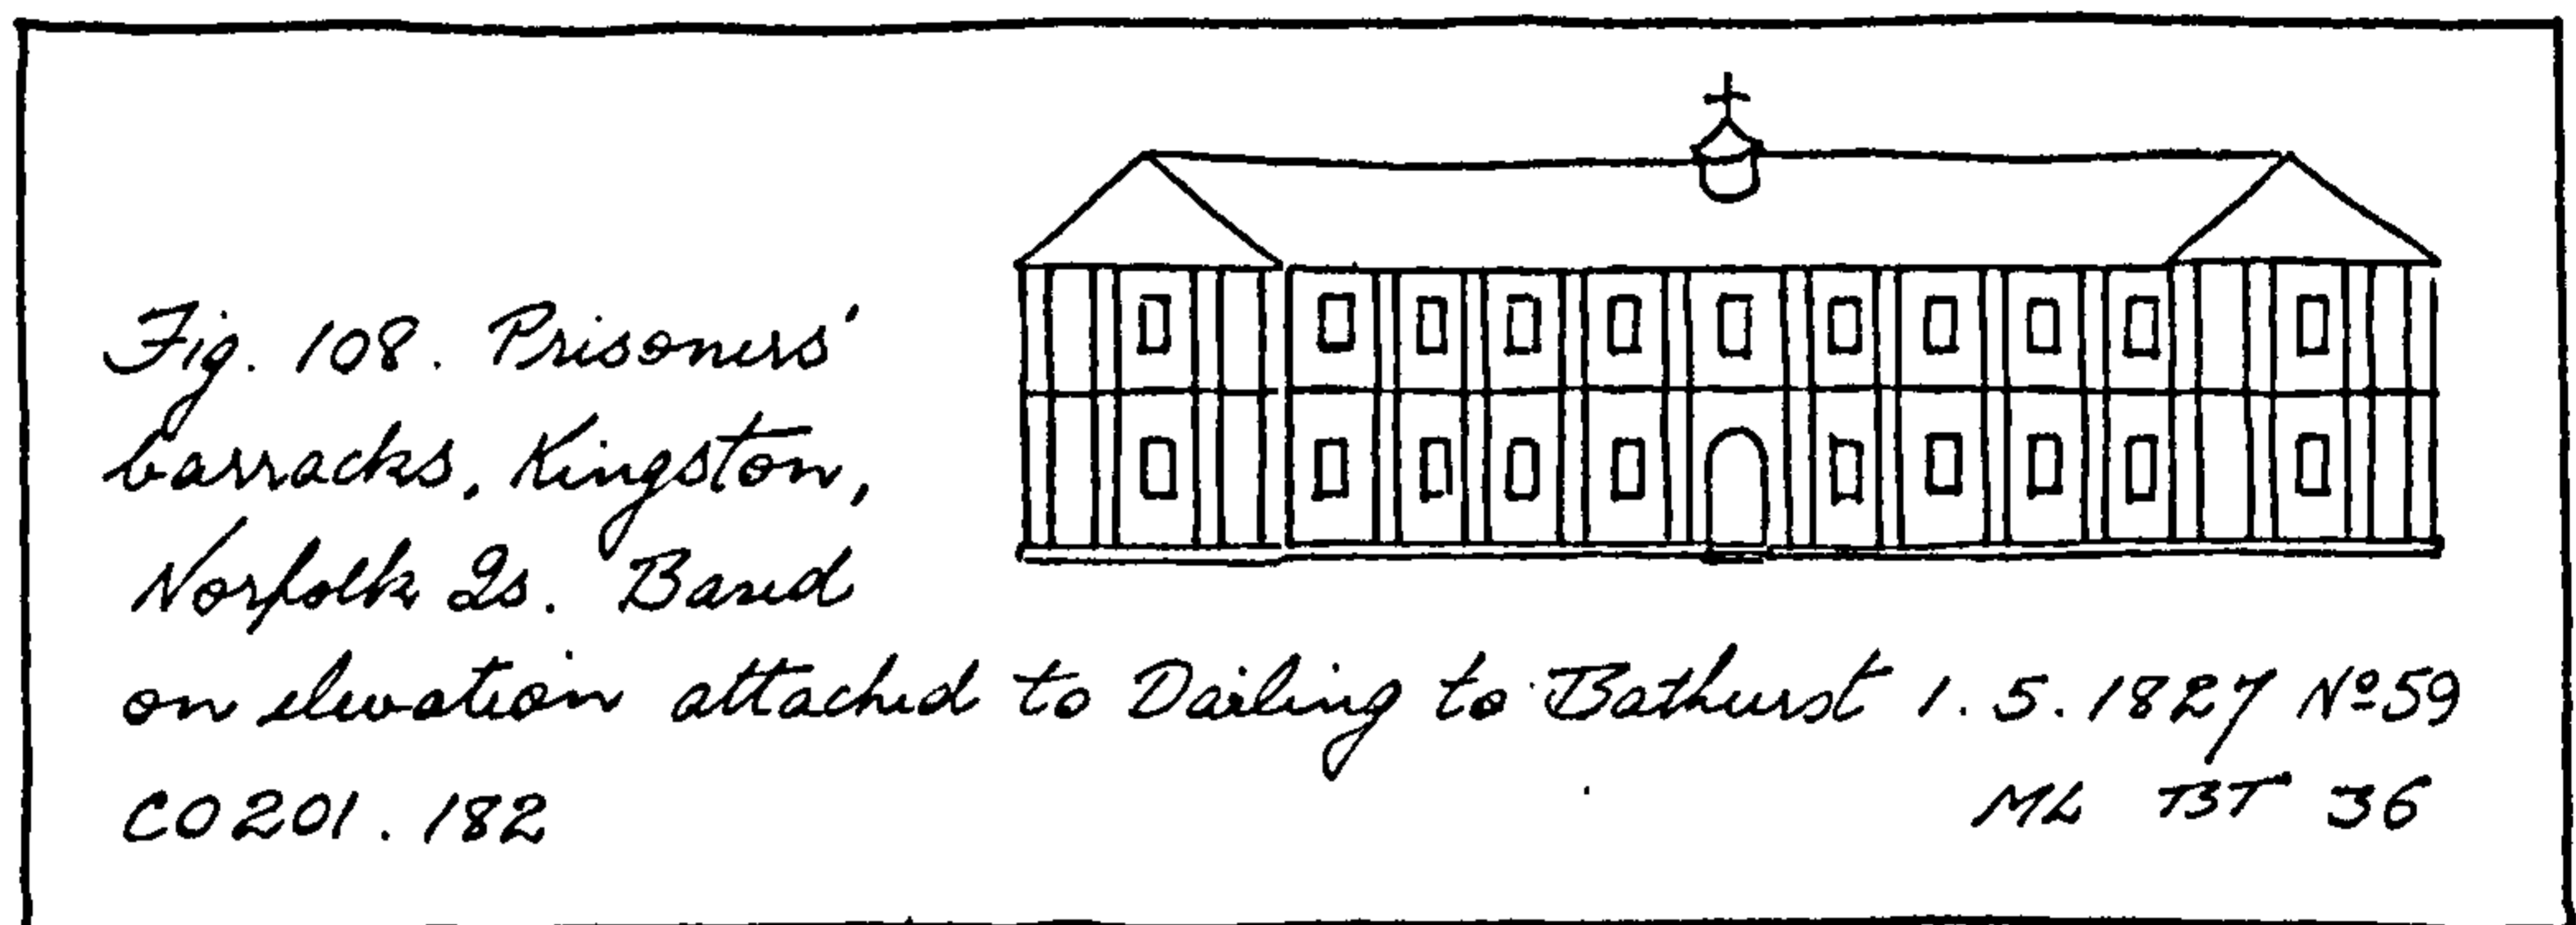 Fig. 108. Prisoners'
barracks, Kingston,
Norfolk Is. Based
on elevation attached to Darling to Bathurst 1. 5. 1827 Nº59
CO201. 182 ML BT 36